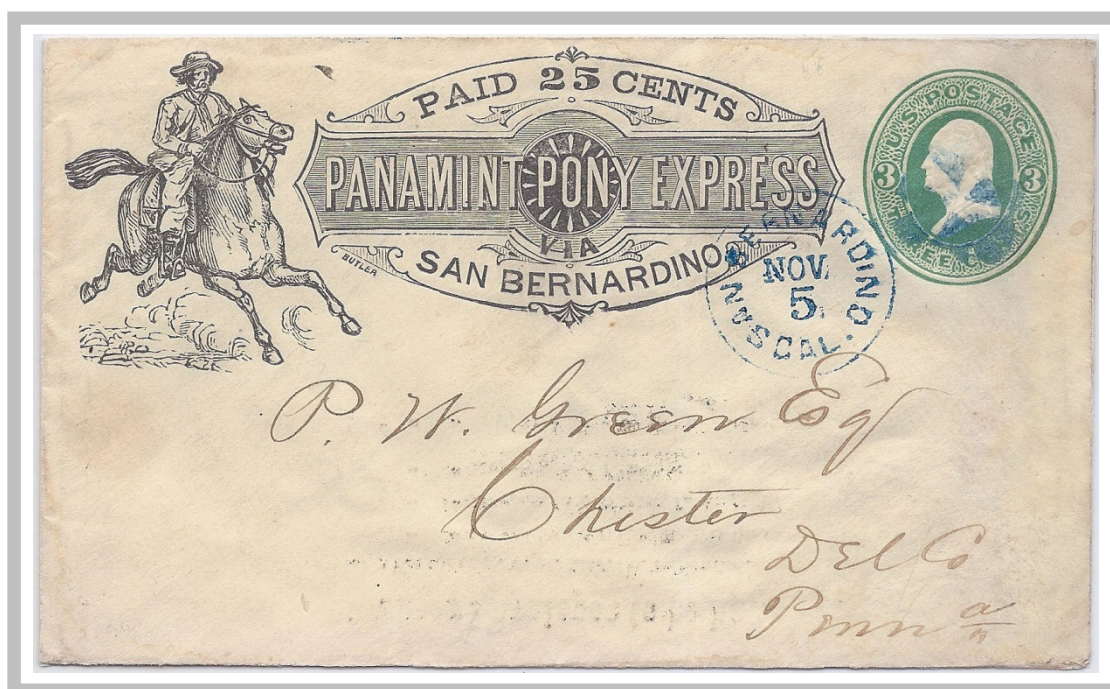 PAID 25 CENTS
PANAMINT PONY EXPRESS
VIA
SAN BERNARDINO
BUTLER
U.S. POSTAGE
3 3
THREE CENTS
SAN BERNARDINO CAL.
NOV.
5.
P. W. Green Esq
Chester
Del Co
Penn a